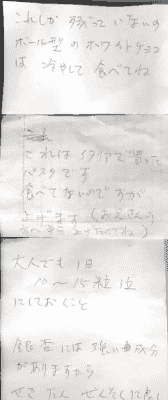 これしか残っていないの
ボール型のホワイトチョコ
は 冷やして食べてね
これはイタリアで買った
パスタです
食べてないのですが
上げます(お
大人でも1日
10〜15粒位
にしておくこと
銀杏には強い 成分
がありますから
せき たん ぜんそくに